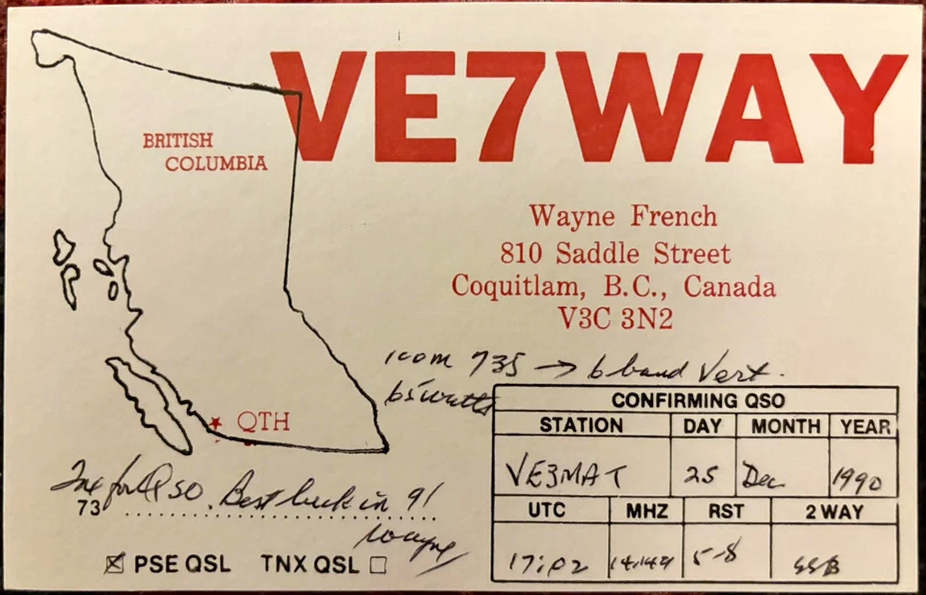 VE7WAY
BRITISH
COLUMBIA
Wayne French
810 Saddle Street
Coquitlam, B.C., Canada
V3C 3N2
icom 735 → 6 band Vert.
65 watts
QTH
CONFIRMING QSO
STATION DAY MONTH YEAR
VE3MAT 25 Dec 1990
UTC MHZ RST 2 WAY
17:02 14.149 5-8 SSB
Tnx for QSO. Best luck in 91
73
Wayne
☒ PSE QSL TNX QSL ☐